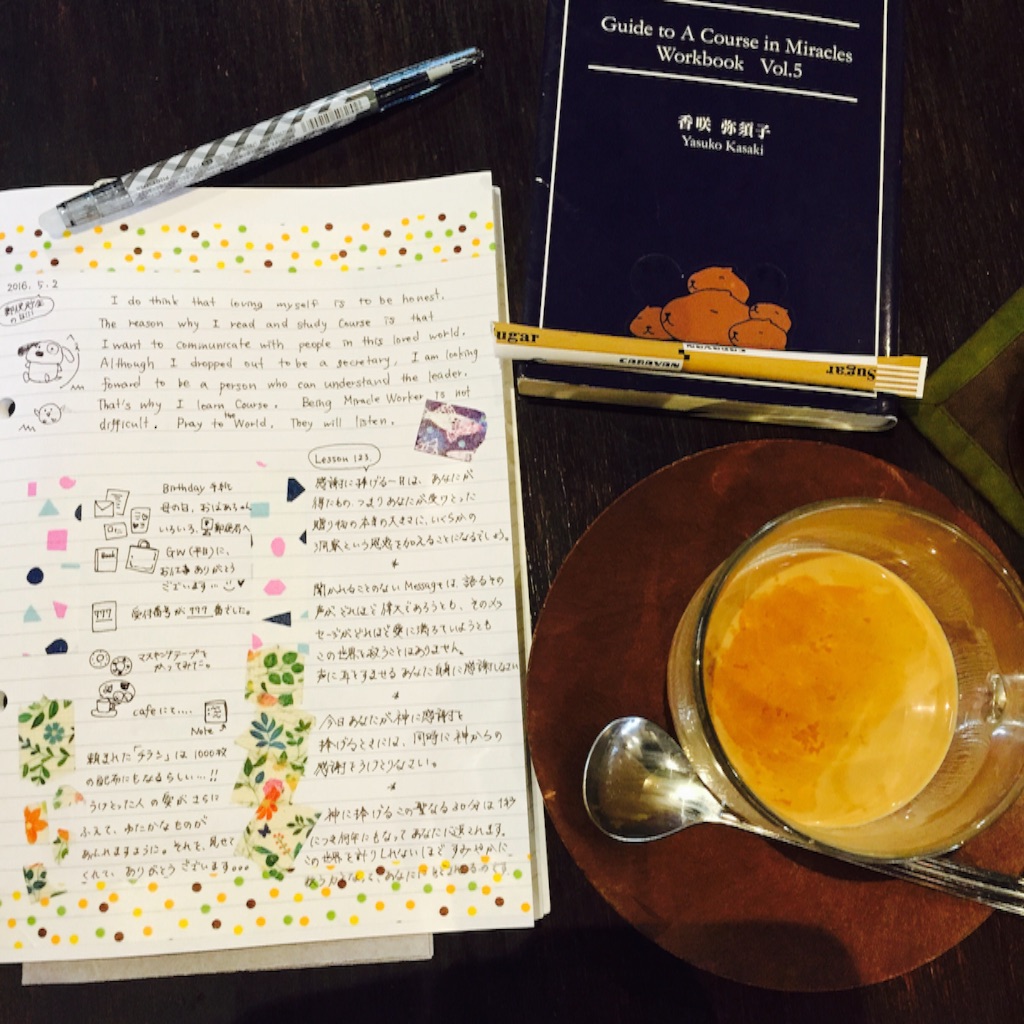 Guide to A Course in Miracles
Workbook Vol.5
香咲 弥須子
Yasuko Kasaki
ugar
CARAVAN
CARAVAN
Sugar
2016. 5. 2
I do think that loving myself is to be honest.
The reason why I read and study Course is that
I want to communicate with people in this loved world.
Although I dropped out to be a secretary, I am looking
foward to be a person who can understand the leader.
That's why I learn Course. Being Miracle Worker is not
difficult. Pray to the World. They will listen.
Birthday
母の日、おばあちゃん
いろいろ、郵便局へ
Book
GW(平日)に、
お仕事ありがとう
ございます
777
受付番号が777番でした。
マスキングテープを
かってみた。
cafeにて....
Note
頼まれた「チラシ」は1000枚
の配布にもなるらしい…!!
うけとった人の愛がさらに
ふえて、ゆたかなものが
あふれますように。それを、見せて
くれて、ありがとうございます...
Lesson 123.
感謝に捧げる一日は、あなたが
得たもの、つまりあなたが受けとった
贈り物の本来の大きさに、いくらかの
洞察という恩恵を加えることになるでしょう。
*
聞かれることのないMessageは、語るその
声がどれほど偉大であろうとも、そのメッ
セージがどれほど愛に満ちていようとも
この世界を救うことはありません。
声に耳をすませるあなた自身に感謝しなさい
*
今日あなたが神に感謝を
捧げるときには、同時に神からの
感謝をうけとりなさい。
*
神に捧げるこの聖なる30分は1秒
につき何年にもなってあなたに返されます。
この世界を計りしれないほどすみやかに